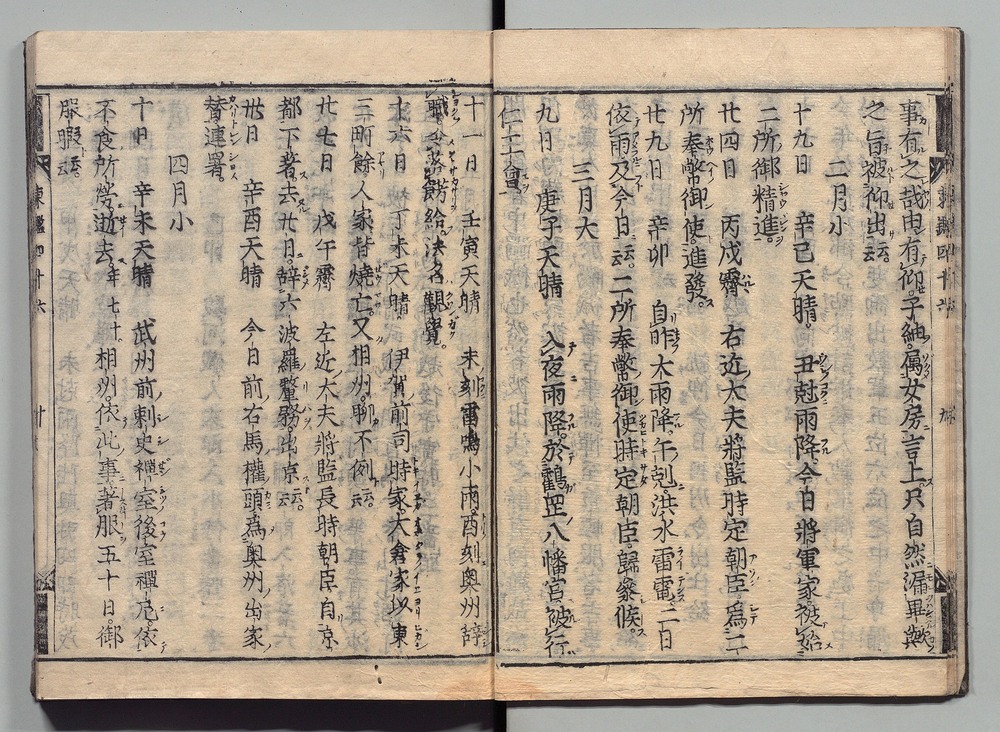 事有之哉由有仰子細属女房言上只自然漏畢歟
之旨被仰出云云
二月小
十九日 辛巳天晴。丑尅雨降今日將軍家被始
二所御精進。
廿四日 丙戌霽 右近大夫將監時定朝臣爲二
所奉幣御使進發。
廿九日 辛卯 自昨大雨降午剋洪水雷電。二日
依雨及今日云云。二所奉幣御使時定朝臣歸參候。
三月大
九日 庚子天晴 入夜雨降。於鶴岡八幡宮被行
仁王會
十一日 壬寅天晴 未刻雷鳴小雨。酉刻奥州辞
職令落餝給決名觀覺。
十六日 丁未天晴 伊賀前司時家大倉家以東
三町餘人家皆燒亡。又相州聊不例云云。
廿七日 戊午霽 左近大夫將監長時朝臣自京
都下著去廿日。辞六波羅警務出京云云。
卅日 辛酉天晴 今日前右馬權頭爲奥州出家
替連署。
四月小
十日 辛未天晴 武州前刺史禪室後室禪尼依
不食所勞逝去年七十。相州依此事著服五十日。御
服暇云云。
東鑑四十六